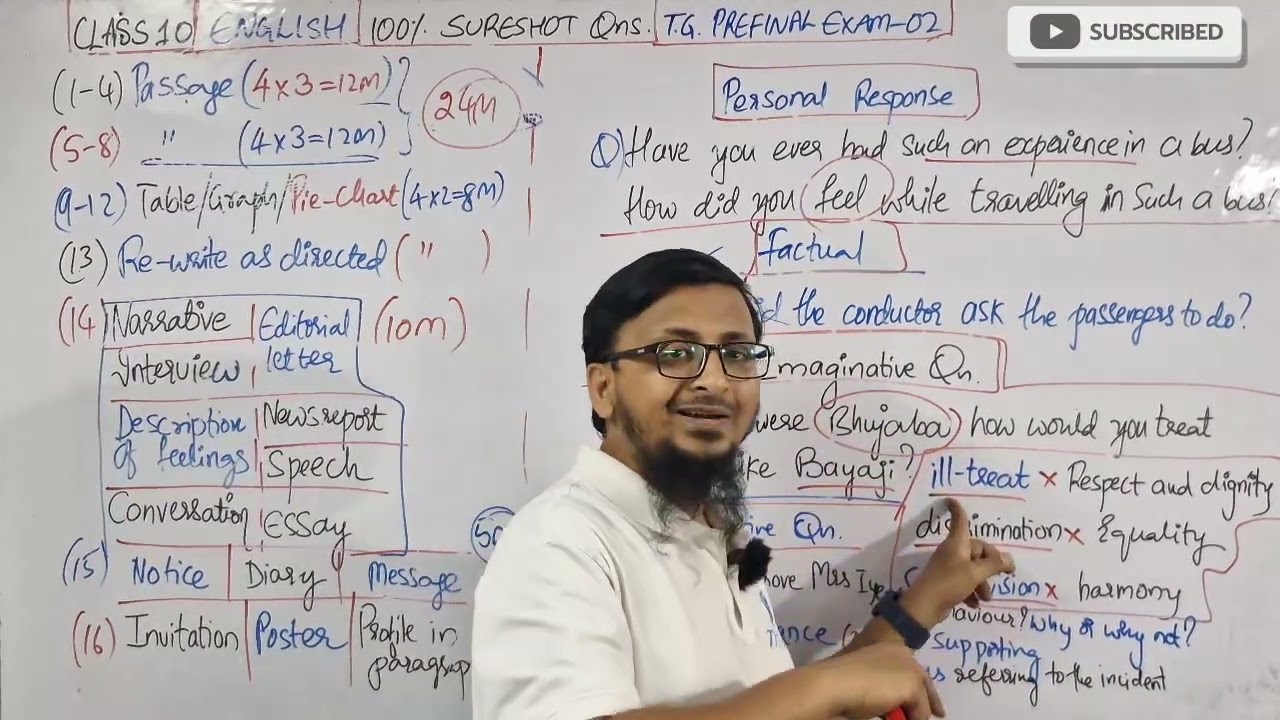 CLASS 10 ENGLISH 100% SURESHOT Qns. T.G. PREFINAL EXAM-02
SUBSCRIBED
(1-4) Passage (4x3=12m)
(5-8) " (4x3=12m)
24M
(9-12) Table/Graph/Pie-Chart (4x2=8M)
(13) Re-write as directed ( " )
(14) Narrative Editorial letter (10m)
Interview
Description of feelings News report
Speech
Conversation Essay
(15) Notice Diary Message
(16) Invitation Poster Profile in
Personal Response
Q) Have you ever had such an experience in a bus?
How did you feel while travelling in such a bus?
Factual
the conductor ask the passengers to do?
Imaginative Qn.
were Bhujaba how would you treat
Bayaji?
ill-treat x Respect and dignity
x Equality
x harmony
Qn.
Mrs
Why or why not?
supporting
referring to the incident